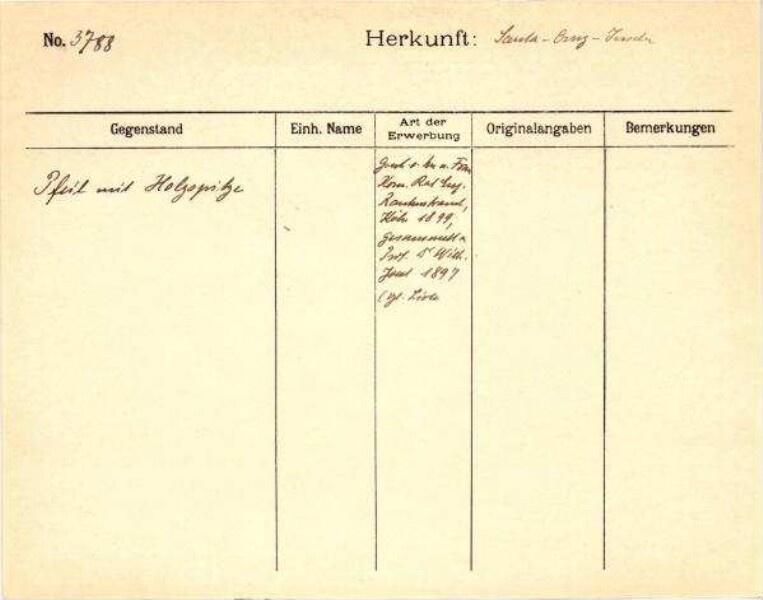 No. 3788
Herkunft: Santa-Cruz-Inseln
Gegenstand
Einh. Name
Art der
Erwerbung
Originalangaben
Bemerkungen
Pfeil mit Holzspitze
Gesch. v. Hrn. u. Frau
Kom. Rat Eug.
Rautenstrauch,
Köln 1899,
gesammelt v.
Prof. Dr Wilh.
Joest 1897
(vgl. Liste